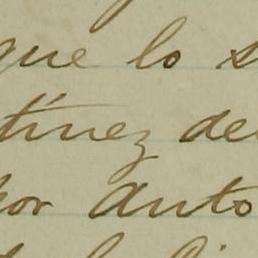 que lo s
tínez del
por Anto